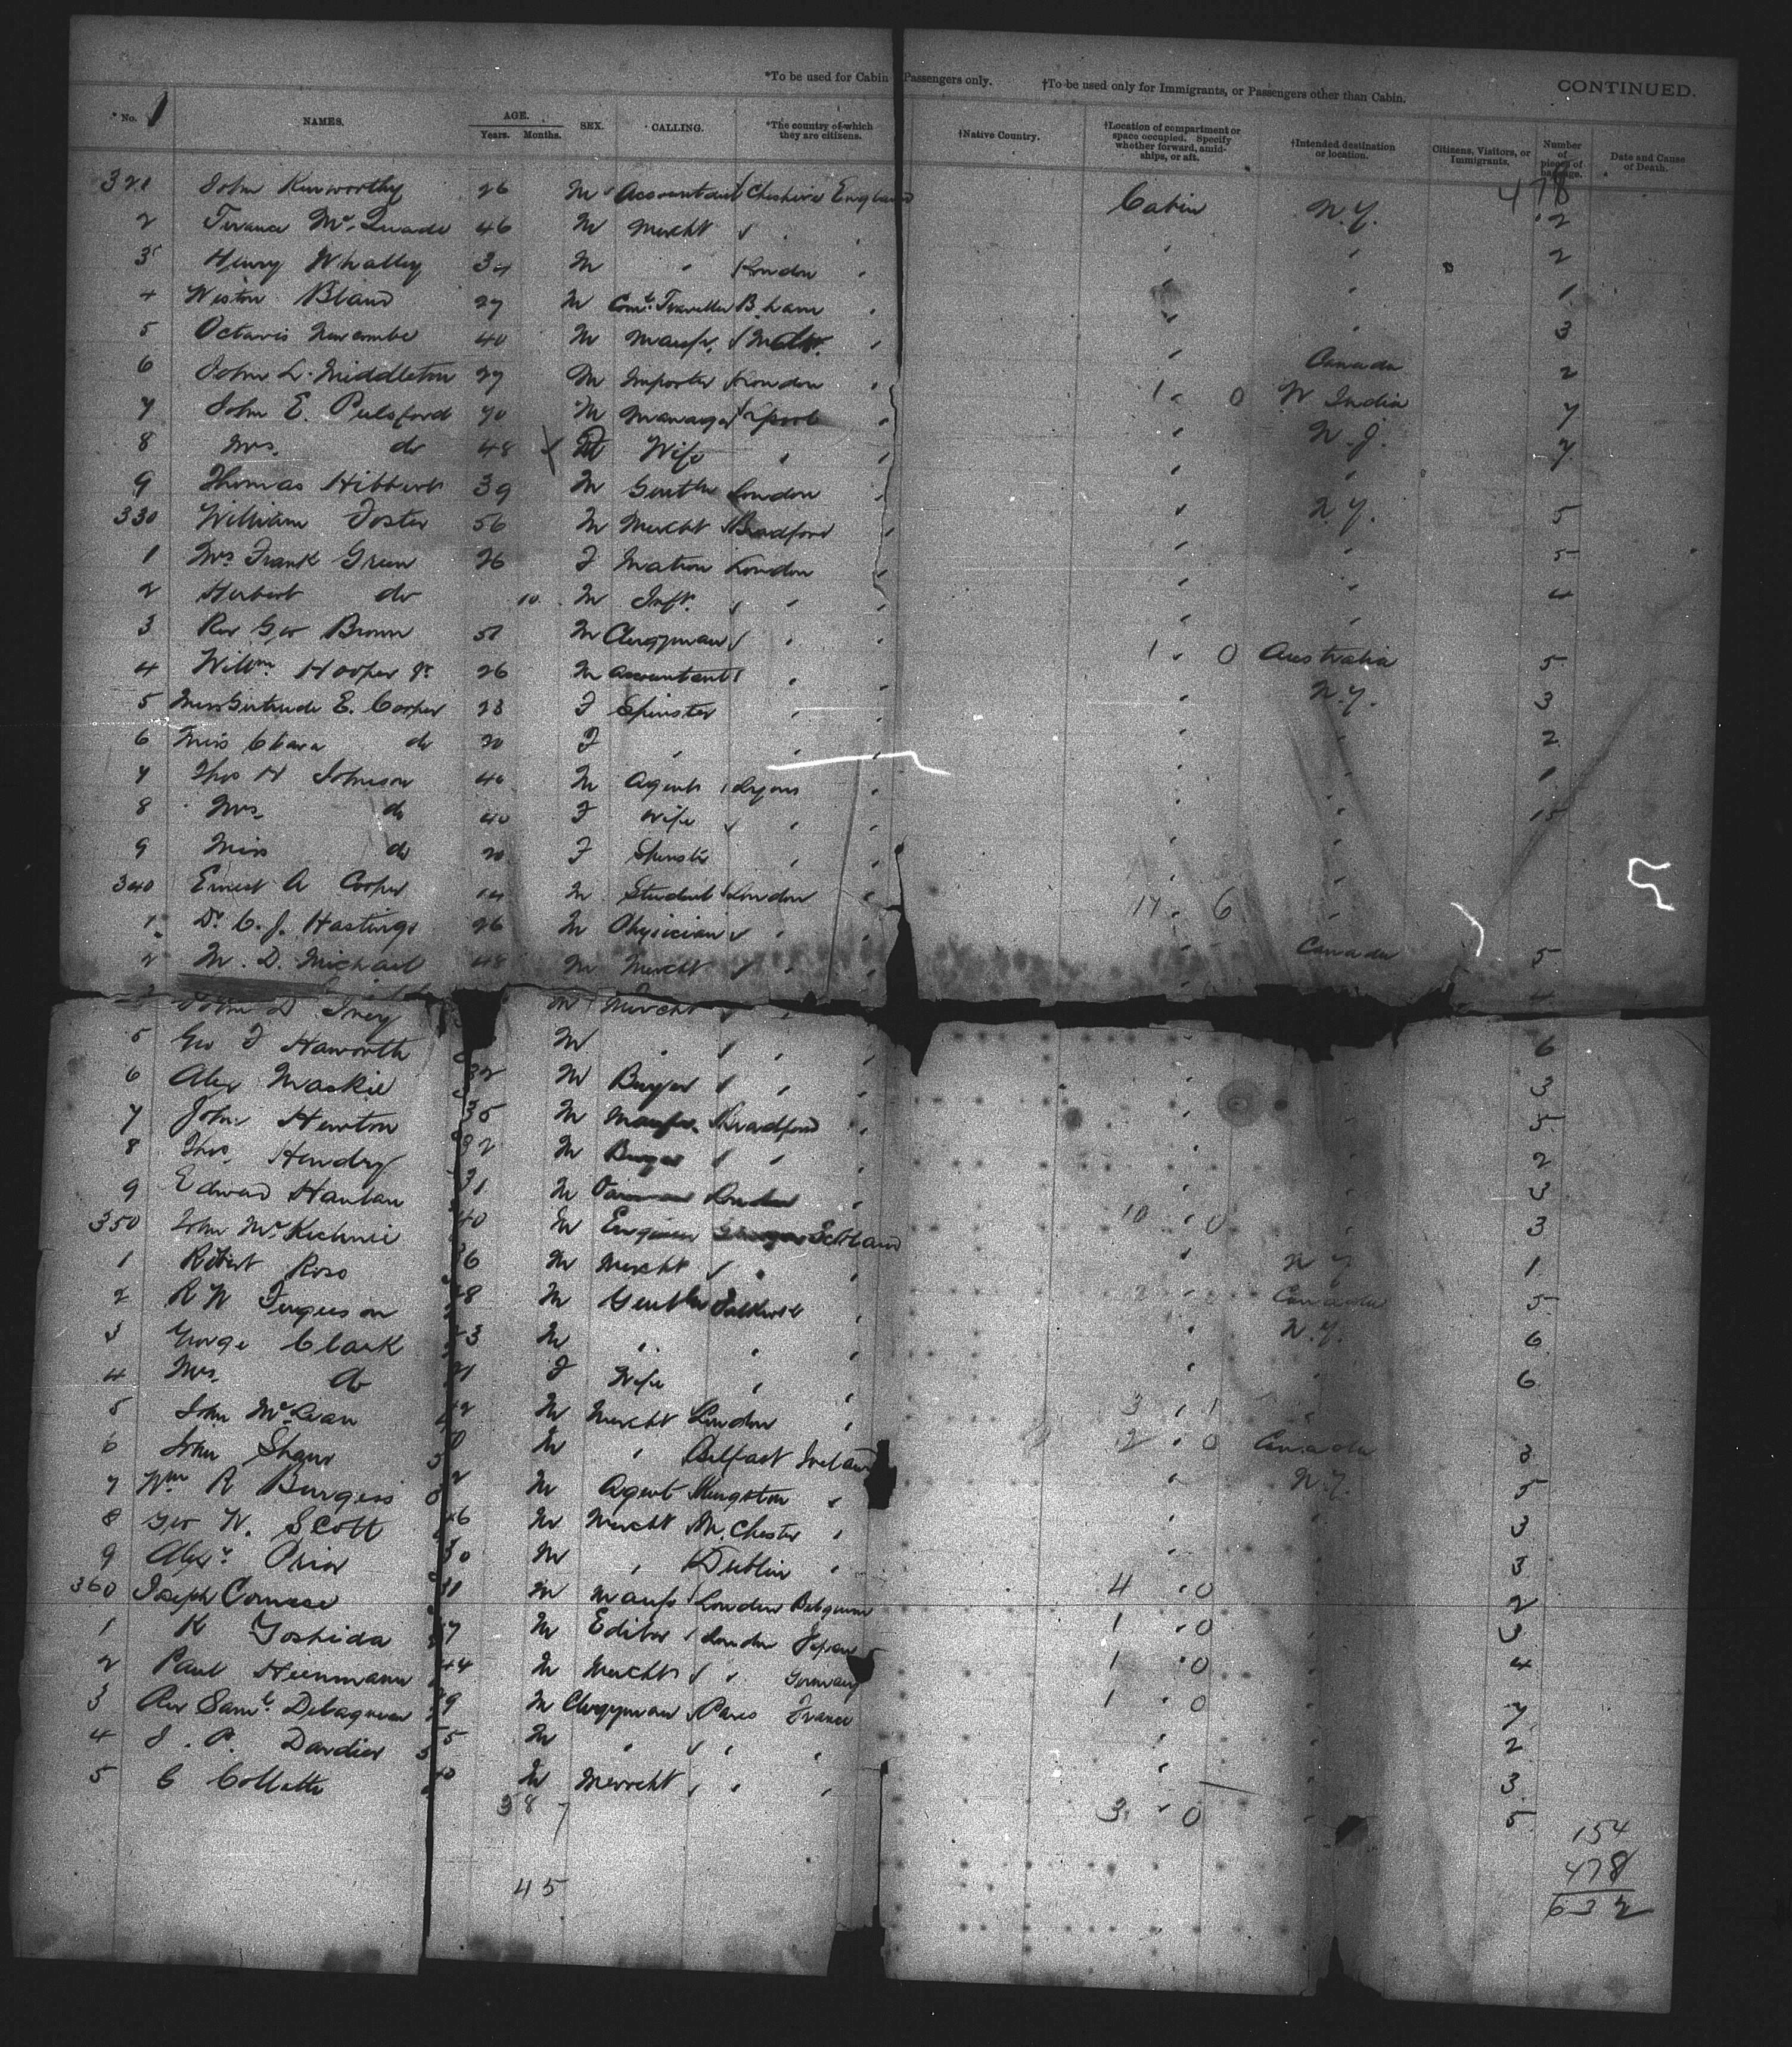 *To be used for Cabin Passengers only. †To be used only for Immigrants, or Passengers other than Cabin. CONTINUED.
No. NAMES. AGE. Years. Months. SEX. CALLING. *The country of which they are citizens. †Native Country. †Location of compartment or space occupied. Specify whether forward, amidships, or aft. †Intended destination or location. Citizens, Visitors, or Immigrants. Number of pieces of baggage. Date and Cause of Death.
478
321 John Kenworthy 26 M Accountant Cheshire England Cabin N.Y. 2
2 Terance McQuade 46 M Mercht 2
3 Henry Whalley 34 M " London 1
4 Weston Bland 27 M Coml. Traveller B.ham 3
5 Octavis Newcombe 40 M Manfr. Canada 2
6 John L. Middleton 27 M Importer London 1 " 0 W India 7
7 John E. Pulsford 70 M Manager Lpool N.J. 7
8 Mrs. do 48 Wife "
9 Thomas Hibbert 39 M Gentln London N.Y. 5
330 William Foster 56 M Mercht Bradford 5
1 Mrs Frank Green 26 F Matron London 4
2 Herbert do 10 M Inft. "
3 Rev Geo Brown 51 M Clergyman " 1 " 0 Australia 5
4 Willm. Hooper Jr 26 M Accountant " N.Y. 3
5 Miss Gertrude E. Cooper 23 F Spinster " 2
6 Miss Clara do 20 F " " 1
7 Thos H Johnson 46 M Agent Lyons 15
8 Mrs. do 40 F Wife "
9 Miss do 20 F Spinstr "
340 Ernest A Cooper 14 M Student London 17 " 6
1 Dr. C. J. Hastings 26 M Physician " Canada 5
2 M. D. Michael 48 M Mercht "
John D Ivey M Mercht "
5 Geo F Haworth M " " 6
6 Alex Mackie 32 M Buyer " 3
7 John Hewton 35 M Manfr. Bradford 5
8 Thos. Hendry 32 M Buyer " 2
9 Edward Hanlan 31 M London 3
350 John McKechnie 40 M Engineer Scotland 10 " 0 3
1 Robert Ross 36 M Mercht " N.Y. 1
2 R W Ferguson 48 M Gentln Canada 5
3 George Clark 23 M " " N.Y. 6
4 Mrs. do 21 F Wife " 6
5 John McLean 42 M Mercht London 3 " 1
6 John Shaw M " Belfast Ireland 2 " 0 Canada 3
7 Wm R Burgess M Agent N.Y. 5
8 Geo W. Scott 46 M Mercht M.Chester 3
9 Alexr. Prior 30 M " Dublin 3
360 Joseph 31 M Manfr London 4 " 0 2
1 K Yoshida 27 M Editor London Japan 1 " 0 3
2 Paul Heinmann 44 M Mercht " Germany 1 " 0 4
3 Rev Saml. 29 M Clergyman Paris France 1 " 0 7
4 J. P. Dardier 55 M " " 2
5 C Collatte 40 M Mercht " 3
387
3 " 0 5
154
478
632
45